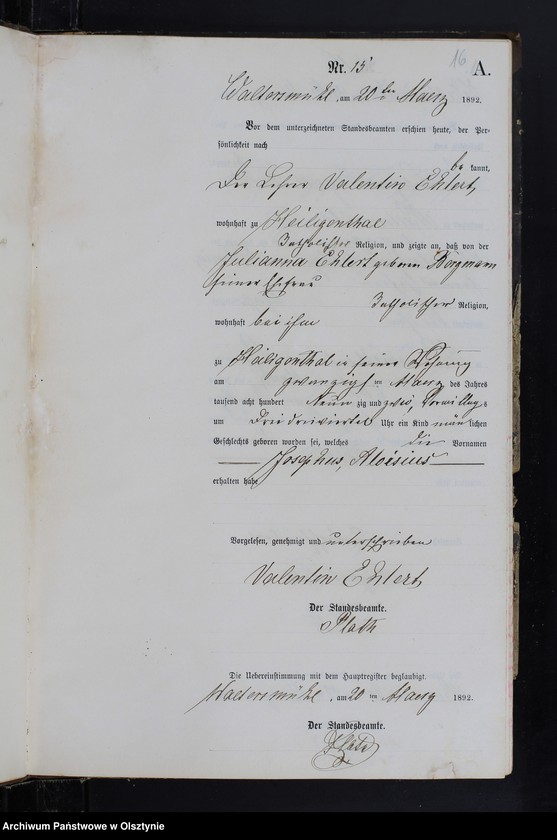 16
Nr. 15 A.
Waltersmühl, am 20 ten Maerz 1892.
Vor dem unterzeichneten Standesbeamten erschien heute, der Per-
sönlichkeit nach
be kannt,
Der Lehrer Valentin Ehlert,
wohnhaft zu Heiligenthal
katholischer Religion, und zeigte an, daß von der
Julianna Ehlert geboren Bergmann
seiner Ehefrau
katholischer Religion,
wohnhaft bei ihm
zu Heiligenthal in seiner Wohnung
am zwanzigsten Maerz des Jahres
tausend acht hundert neun zig und zwei, Vormittags
um drei dreiviertel Uhr ein Kind männlichen
Geschlechts geboren worden sei, welches die Vornamen
Josephus, Aloisius
erhalten habe.
Vorgelesen, genehmigt und unterschrieben
Valentin Ehlert
Der Standesbeamte.
Plath
Die Uebereinstimmung mit dem Hauptregister beglaubigt.
Waltersmühl, am 20 ten Maerz 1892.
Der Standesbeamte.
Plath
Archiwum Państwowe w Olsztynie